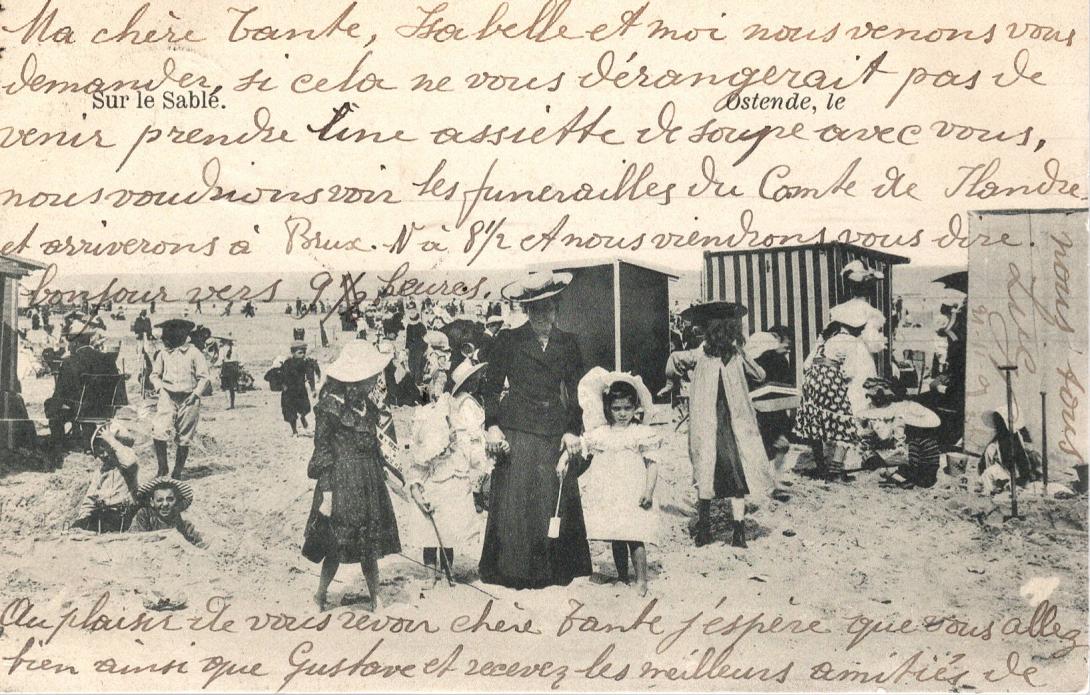 Ma chère Tante, Isabelle et moi nous venons vous
demander, si cela ne vous dérangerait pas de
Sur le Sable.
Ostende, le
venir prendre une assiette de soupe avec vous,
nous voudrions voir les funerailles du Comte de Flandre
et arriverons à Brux. N à 8 1/2 et nous viendrons vous dire
bonjour vers 9 heures.
Au plaisir de vous revoir chère Tante j'espère que vous allez
bien ainsi que Gustave et recevez les meilleurs amitiés de
nous tous